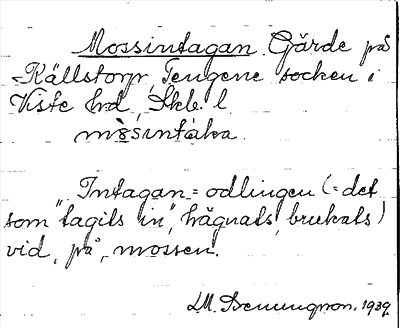 Mossintagan. Gärde på
Källstorp, Tengene socken i
Viste hd, Skb. l.
mòsintáka.
Intagan = odlingen (= det
som "tagits in", hägnats, brukats)
vid, på, mossen.
1939.